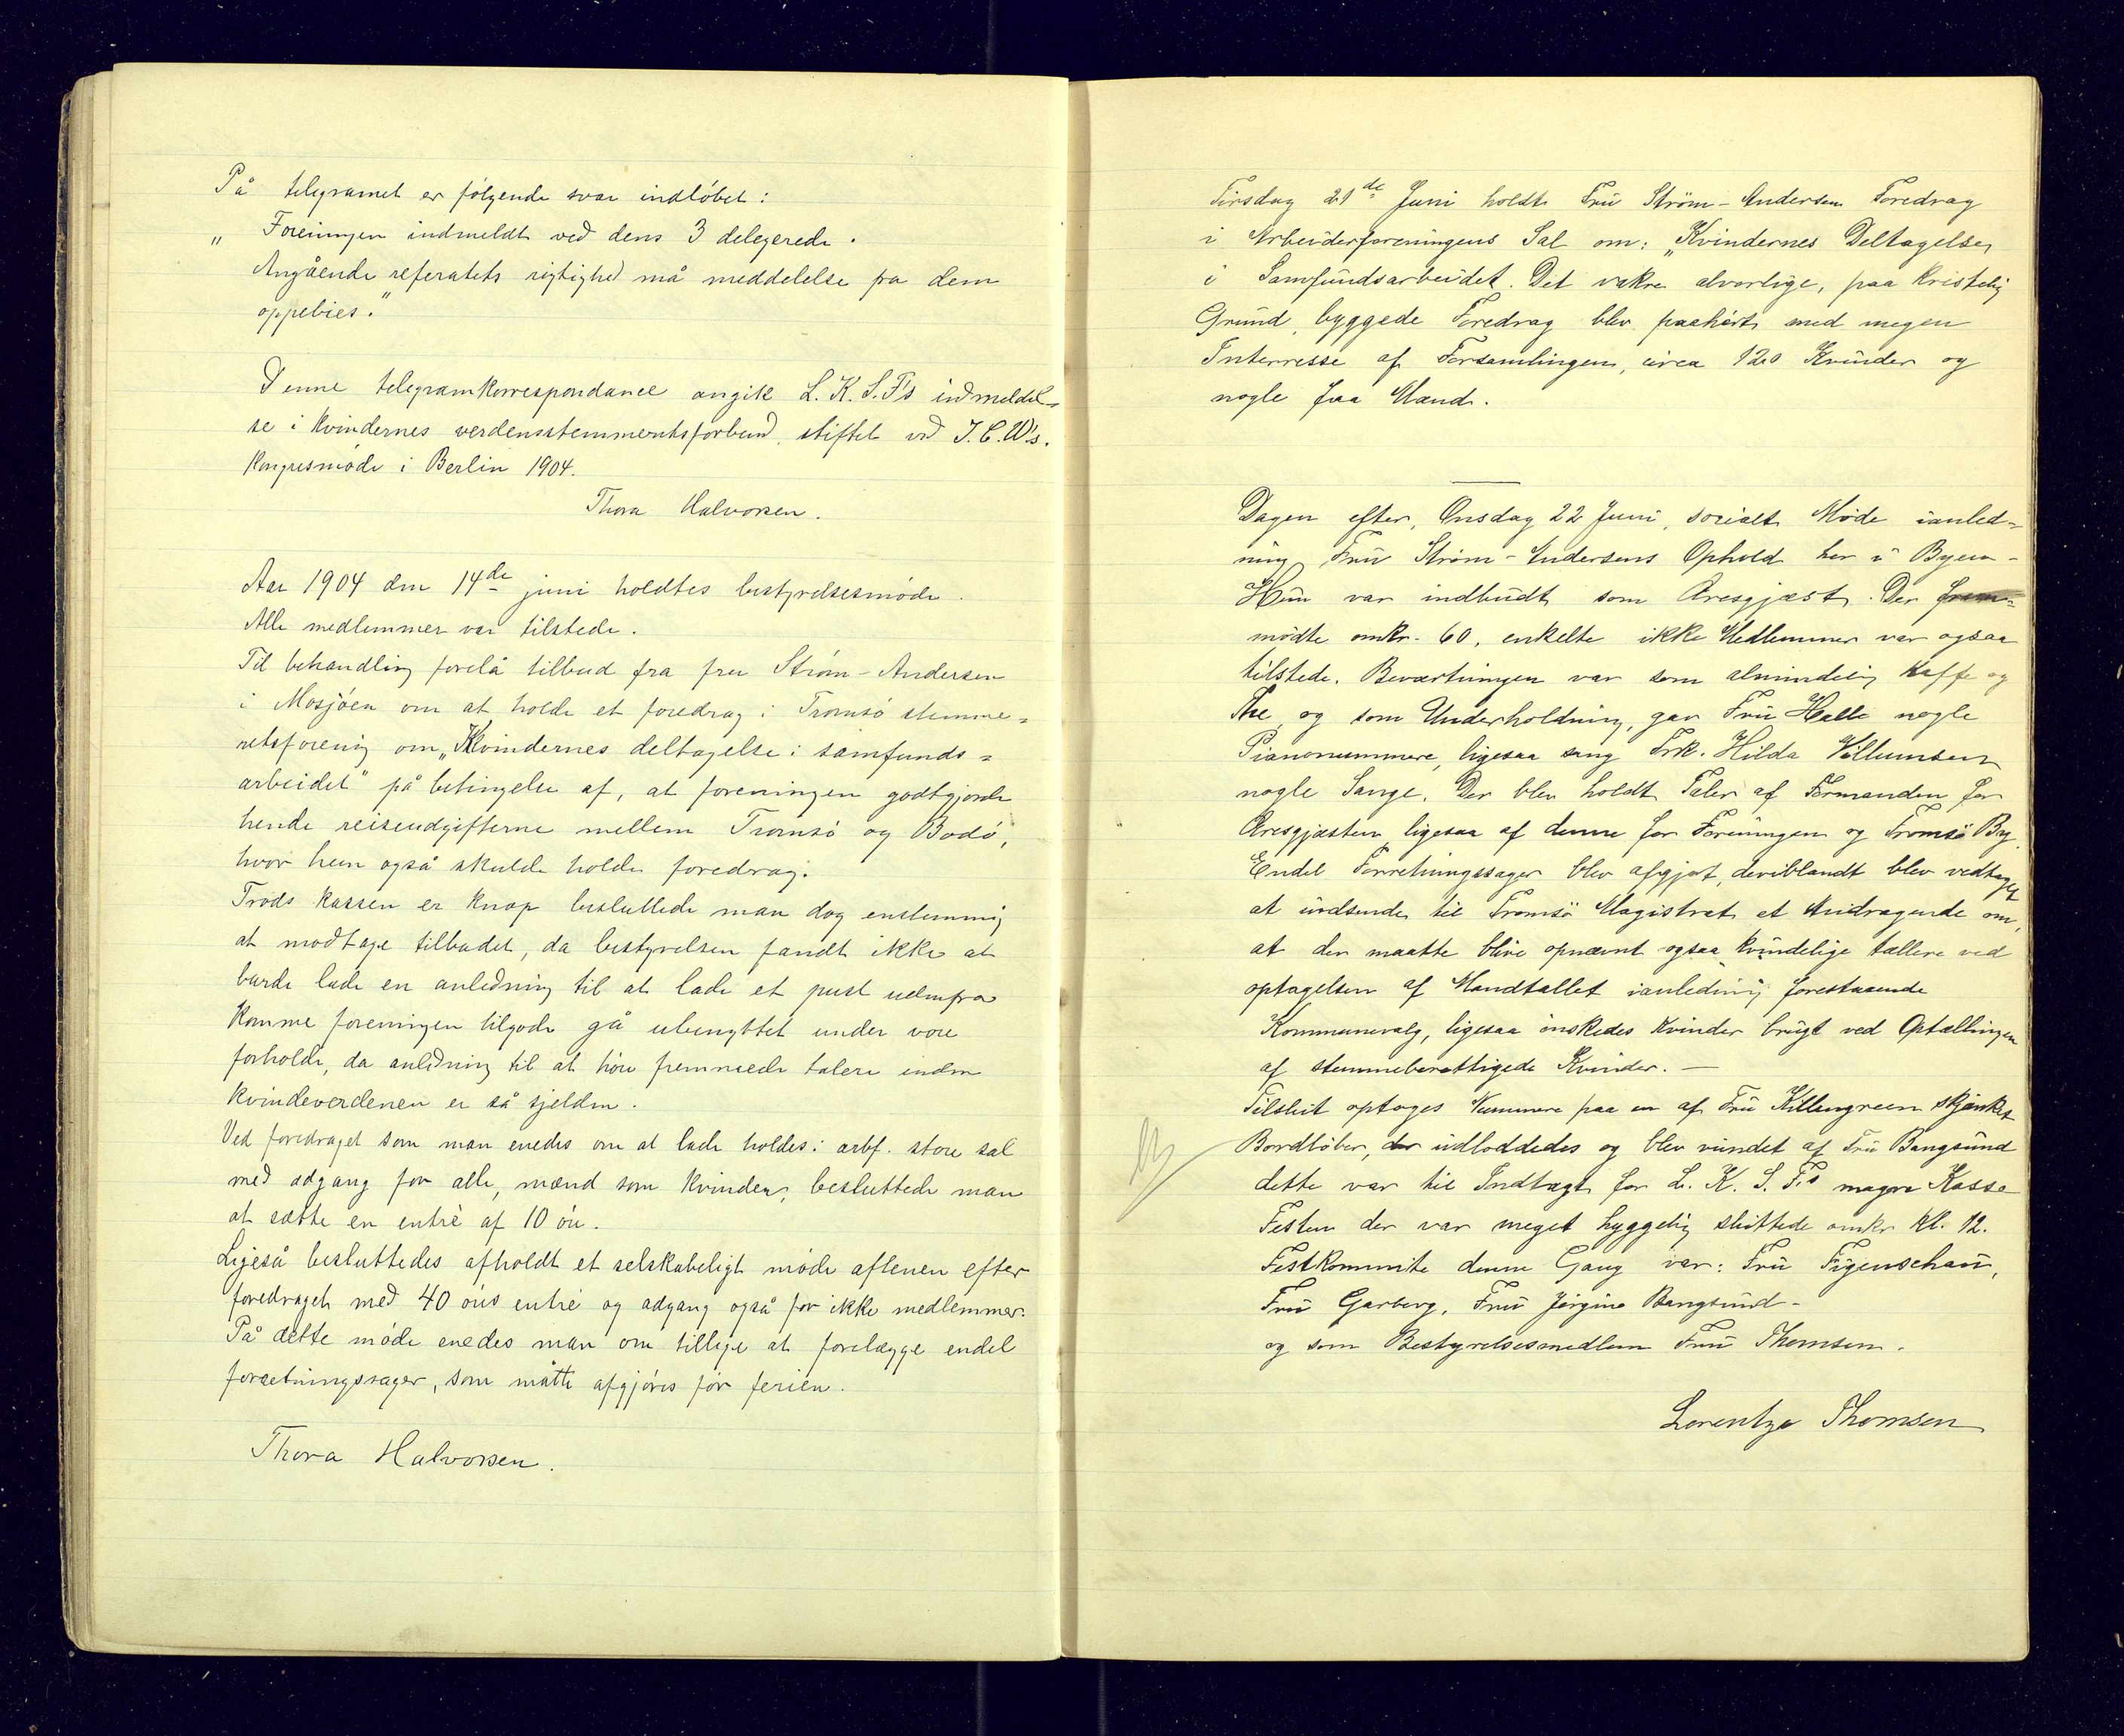 På telegramet er følgende svar indløbet:
„ Foreningen indmeldt ved dens 3 delegerede.
Angående referatets rigtighed må meddelelse fra dem
oppebies."
Denne telegramkorrespondance angik L. K. S. F's indmeldel=
se i kvindernes verdensstemmeretsforbund, stiftet ved I. C. W's.
kongresmøde i Berlin 1904.
Thora Halvorsen.
Aar 1904 den 14de juni holdtes bestyrelsesmøde.
Alle medlemmer var tilstede.
Til behandling forelå tilbud fra fru Strøm-Andersen
i Mosjøen om at holde et foredrag i Tromsø stemme=
retsforenig om „Kvindernes deltagelse i samfunds=
arbeidet" på betingelse af, at foreningen godtgjorde
hende reiseudgifterne mellem Tromsø og Bodø,
hvor hun også skulde holde foredrag.
Trods kassen er knap besluttede man dog enstemmig
at modtage tilbudet, da bestyrelsen fandt ikke at
burde lade en anledning til at lade et pust udenfra
komme foreningen tilgode gå ubenyttet under vore
forholde, da anledning til at høre fremmede talere inden
kvindeverdenen er så sjelden.
Ved foredraget som man enedes om at lade holdes i arbf. store sal
med adgang for alle, mænd som kvinder, besluttede man
at sætte en entré af 10 øre.
Ligeså besluttedes afholdt et selskabeligt møde aftenen efter
foredraget med 40 øres entré og adgang også for ikke medlemmer.
På dette møde enedes man om tillige at forelægge endel
forretningssager, som måtte afgjøres før ferien.
Thora Halvorsen.
Tirsdag 21de Juni holdt Fru Strøm-Andersen Foredrag
i Arbeiderforeningens Sal om: „Kvindernes Deltagelse
i Samfundsarbeidet. Det vakre alvorlige, paa kristelig
Grund byggede Foredrag blev paahørt med megen
Interresse af Forsamlingen, circa 120 Kvinder og
nogle faa Mænd.
Dagen efter, Onsdag 22 Juni, socialt Møde ianled=
ning Fru Strøm-Andersens Ophold her i Byen-
Hun var indbudt som Æresgjæst. Der frem=
mødte omkr. 60, enkelte ikke Medlemmer var ogsaa
tilstede. Beværtningen var som almindelig Kaffe og
The, og som Underholdning, gav Fru Halle nogle
Pianonummere, ligesaa sang Frk. Hilda Willumsen
nogle Sange. Der blev holdt Taler af Formanden for
Æresgjæsten, ligesaa af denne for Foreningen og Tromsø By.
Endel Forretningssager blev afgjort, deriblandt blev vedtaget
at indsende til Tromsø Magistrat et Andragende om,
at der maatte blive opnævnt ogsaa kvindelige tællere ved
optagelsen af Mandtallet ianledning forestaaende
Kommunevalg, ligesaa ønskedes Kvinder brugt ved Optællingen
af stemmeberettigede Kvinder. —
Tilslut optoges Nummere paa en af Fru Killengreen skjænket
Bordløber, der udloddedes og blev vundet af Fru Bangsund
dette var til Indtægt for L. K. S. F's magre Kasse
Festen der var meget hyggelig sluttede omkr kl. 12.
Festkommite denne Gang var: Fru Figenschau,
Fru Garberg, Fru Jørgine Bangsund-
og som Bestyrelsesmedlem Fru Thomsen.
Lorentze Thomsen